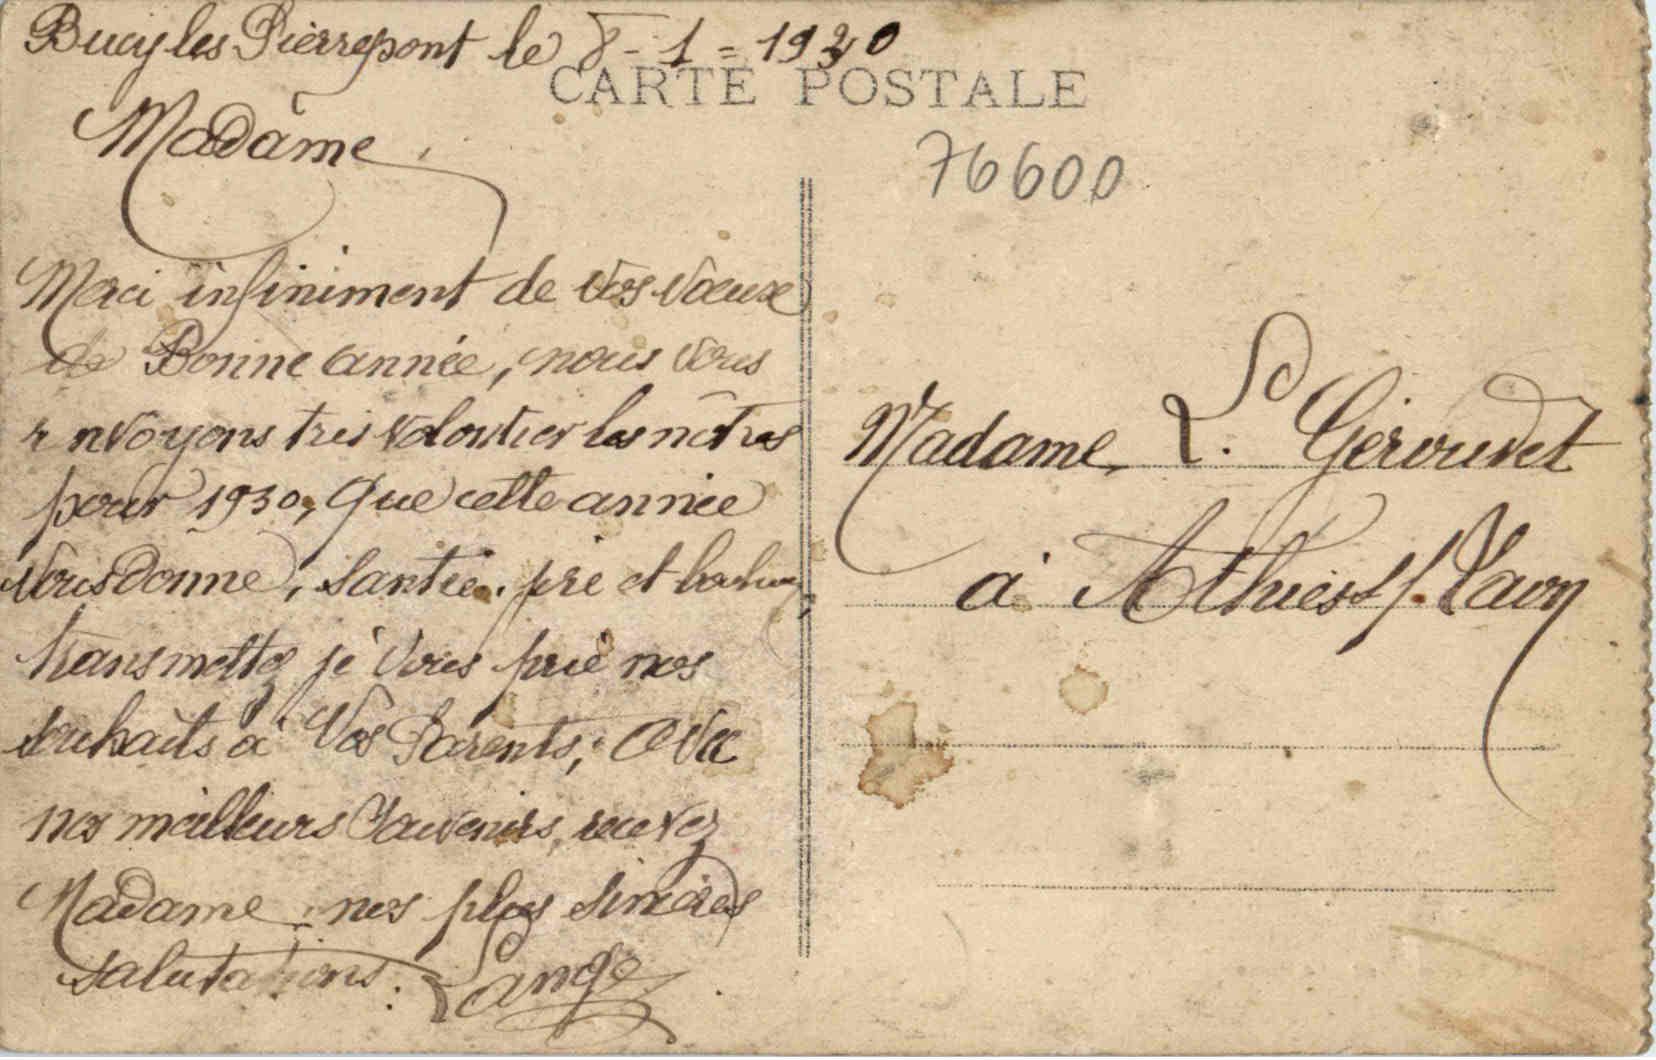 Bucy les Pierrepont le 8-1-1930
CARTE POSTALE
76600
Madame,
Merci infiniment de vos voeux
de Bonne année, nous vous
envoyons tres volontier les nôtres
pour 1930, que cette année
vous donne, santée. joie et bonheur
transmettez je vous prie nos
souhaits à Vos Parents, Avec
nos meilleurs Souvenirs, recevez
Madame, nos plus sincères
salutations.
Lange
Madame L. Géroudet
à Athies s/. Laon